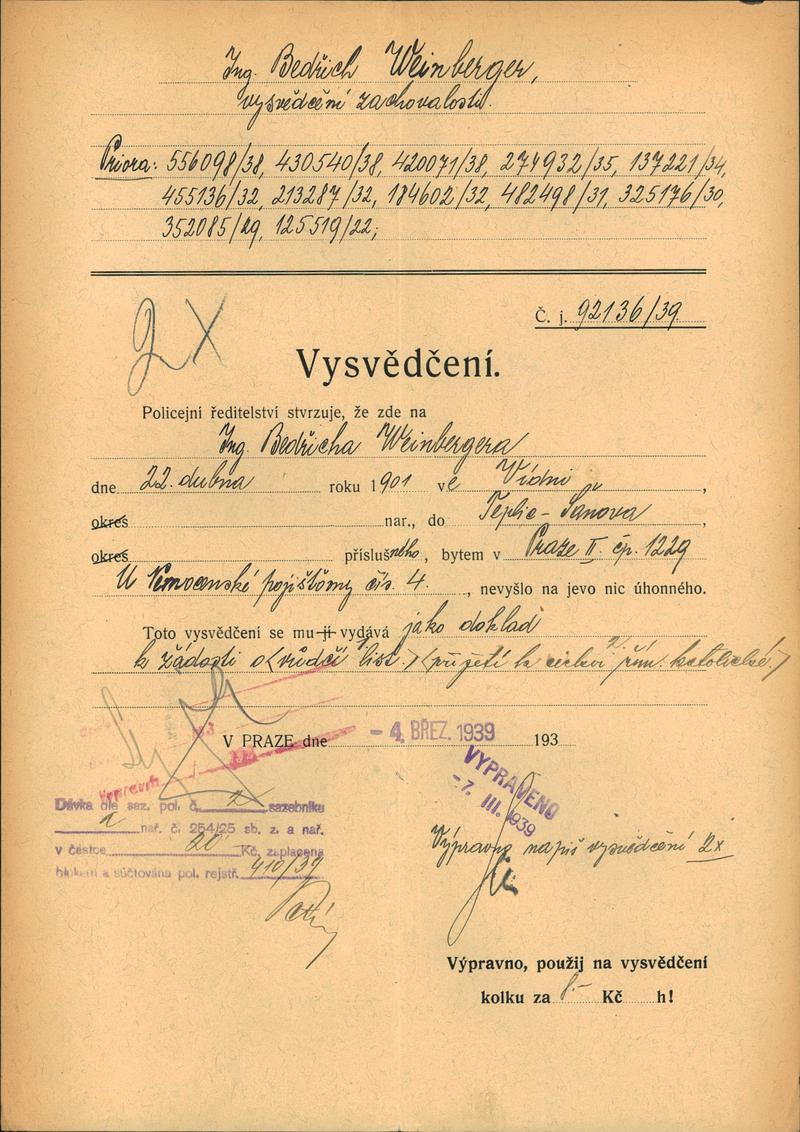 Ing. Bedřich Weinberger,
vysvědčení zachovalosti.
Priora: 556098/38, 430540/38, 420071/38, 274932/35, 137221/34,
455136/32, 213287/32, 184602/32, 482498/31, 325176/30,
352085/29, 125519/22;
2 X
Č. j. 92136/39
Vysvědčení.
Policejní ředitelství stvrzuje, že zde na
Ing. Bedřicha Weinbergera
dne 22. dubna roku 1901 ve Vídni,
okres nar., do Teplic-Šanova,
okres příslušného, bytem v Praze II. čp. 1229
U Nemocenské pojišťovny čís. 4., nevyšlo na jevo nic úhonného.
Toto vysvědčení se mu-ji vydává jako doklad
k žádosti o (vůdčí list.) (přijetí k církvi řím. katolické.)
V PRAZE dne - 4. BŘEZ. 1939 193
VYPRAVENO
-7. III. 1939
Dávka dle saz. pol. č. 2 sazebníku
nař. č. 254/25 sb. z. a nař.
v částce 20 Kč, zaplacena
blokem a súčtována pol. rejstř. 410/39
Výpravno napiš vysvědčení 2x
Výpravno, použij na vysvědčení
kolku za 8.- Kč h!